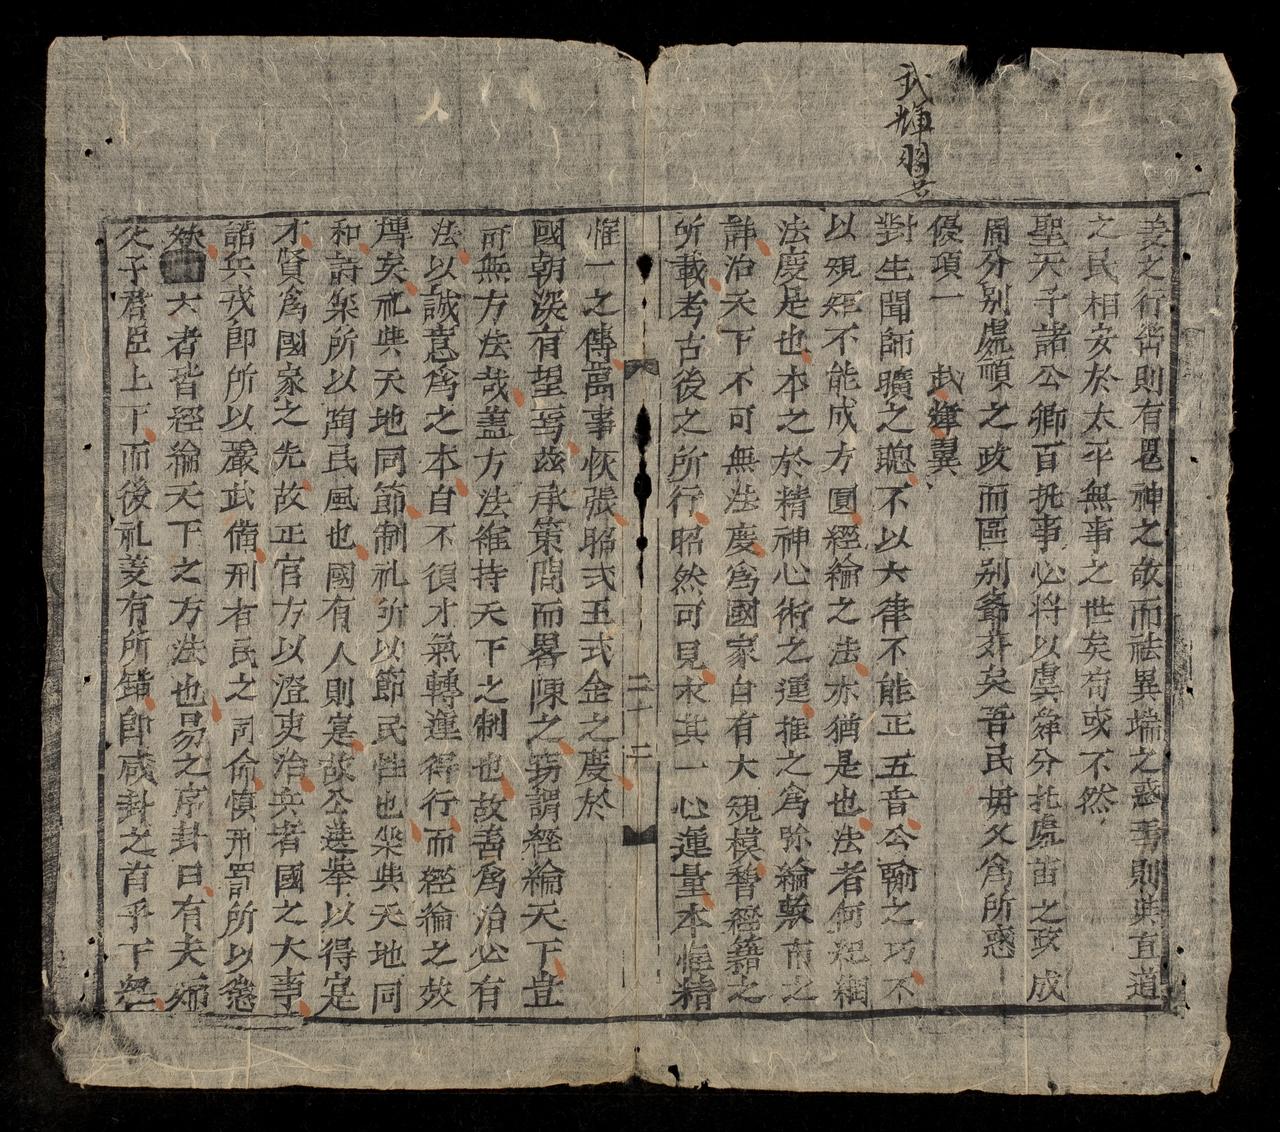 武輝翼
姜之行否則有鬼神之故而祛異端之惑焉則其直道
之民相安於太平無事之世矣苟或不然
聖天子諸公卿百執事必将以虞舜分北處苗之政成
周分别處頑之政而區别番殊矣吾民毋久為所惑
優項一 武輝翼
對生聞師曠之聰不以六律不能正五音公輸之巧不
以規矩不能成方圓經綸之法亦猶是也法者何紀綱
法度是也本之於精神心術之運推之為弥綸敷布之
詳治天下不可無法度為國家自有大規模稽經籍之
所載考古後之所行昭然可見求其一心運量本惟精
惟一之傳萬事恢張昭式玉式金之度於
二十二
國朝深有望焉茲承策問而畧陳之竊謂經綸天下豈
可無方法哉盖方法維持天下之制也故善為治必有
法以誠意為之本自不須才氣轉運得行而經綸之效
溥矣礼與天地同節制礼所以節民性也樂與天地同
和詩樂所以陶民風也國有人則寔故公選舉以得寔
才賢為國家之先故正官方以澄吏治兵者國之大事
詰兵戎即所以嚴武備刑者民之司命慎刑罰所以
大者皆經綸天下之方法也易之序卦曰有夫婦
父子君臣上下而後礼姜有所錯即咸卦之首乎下經